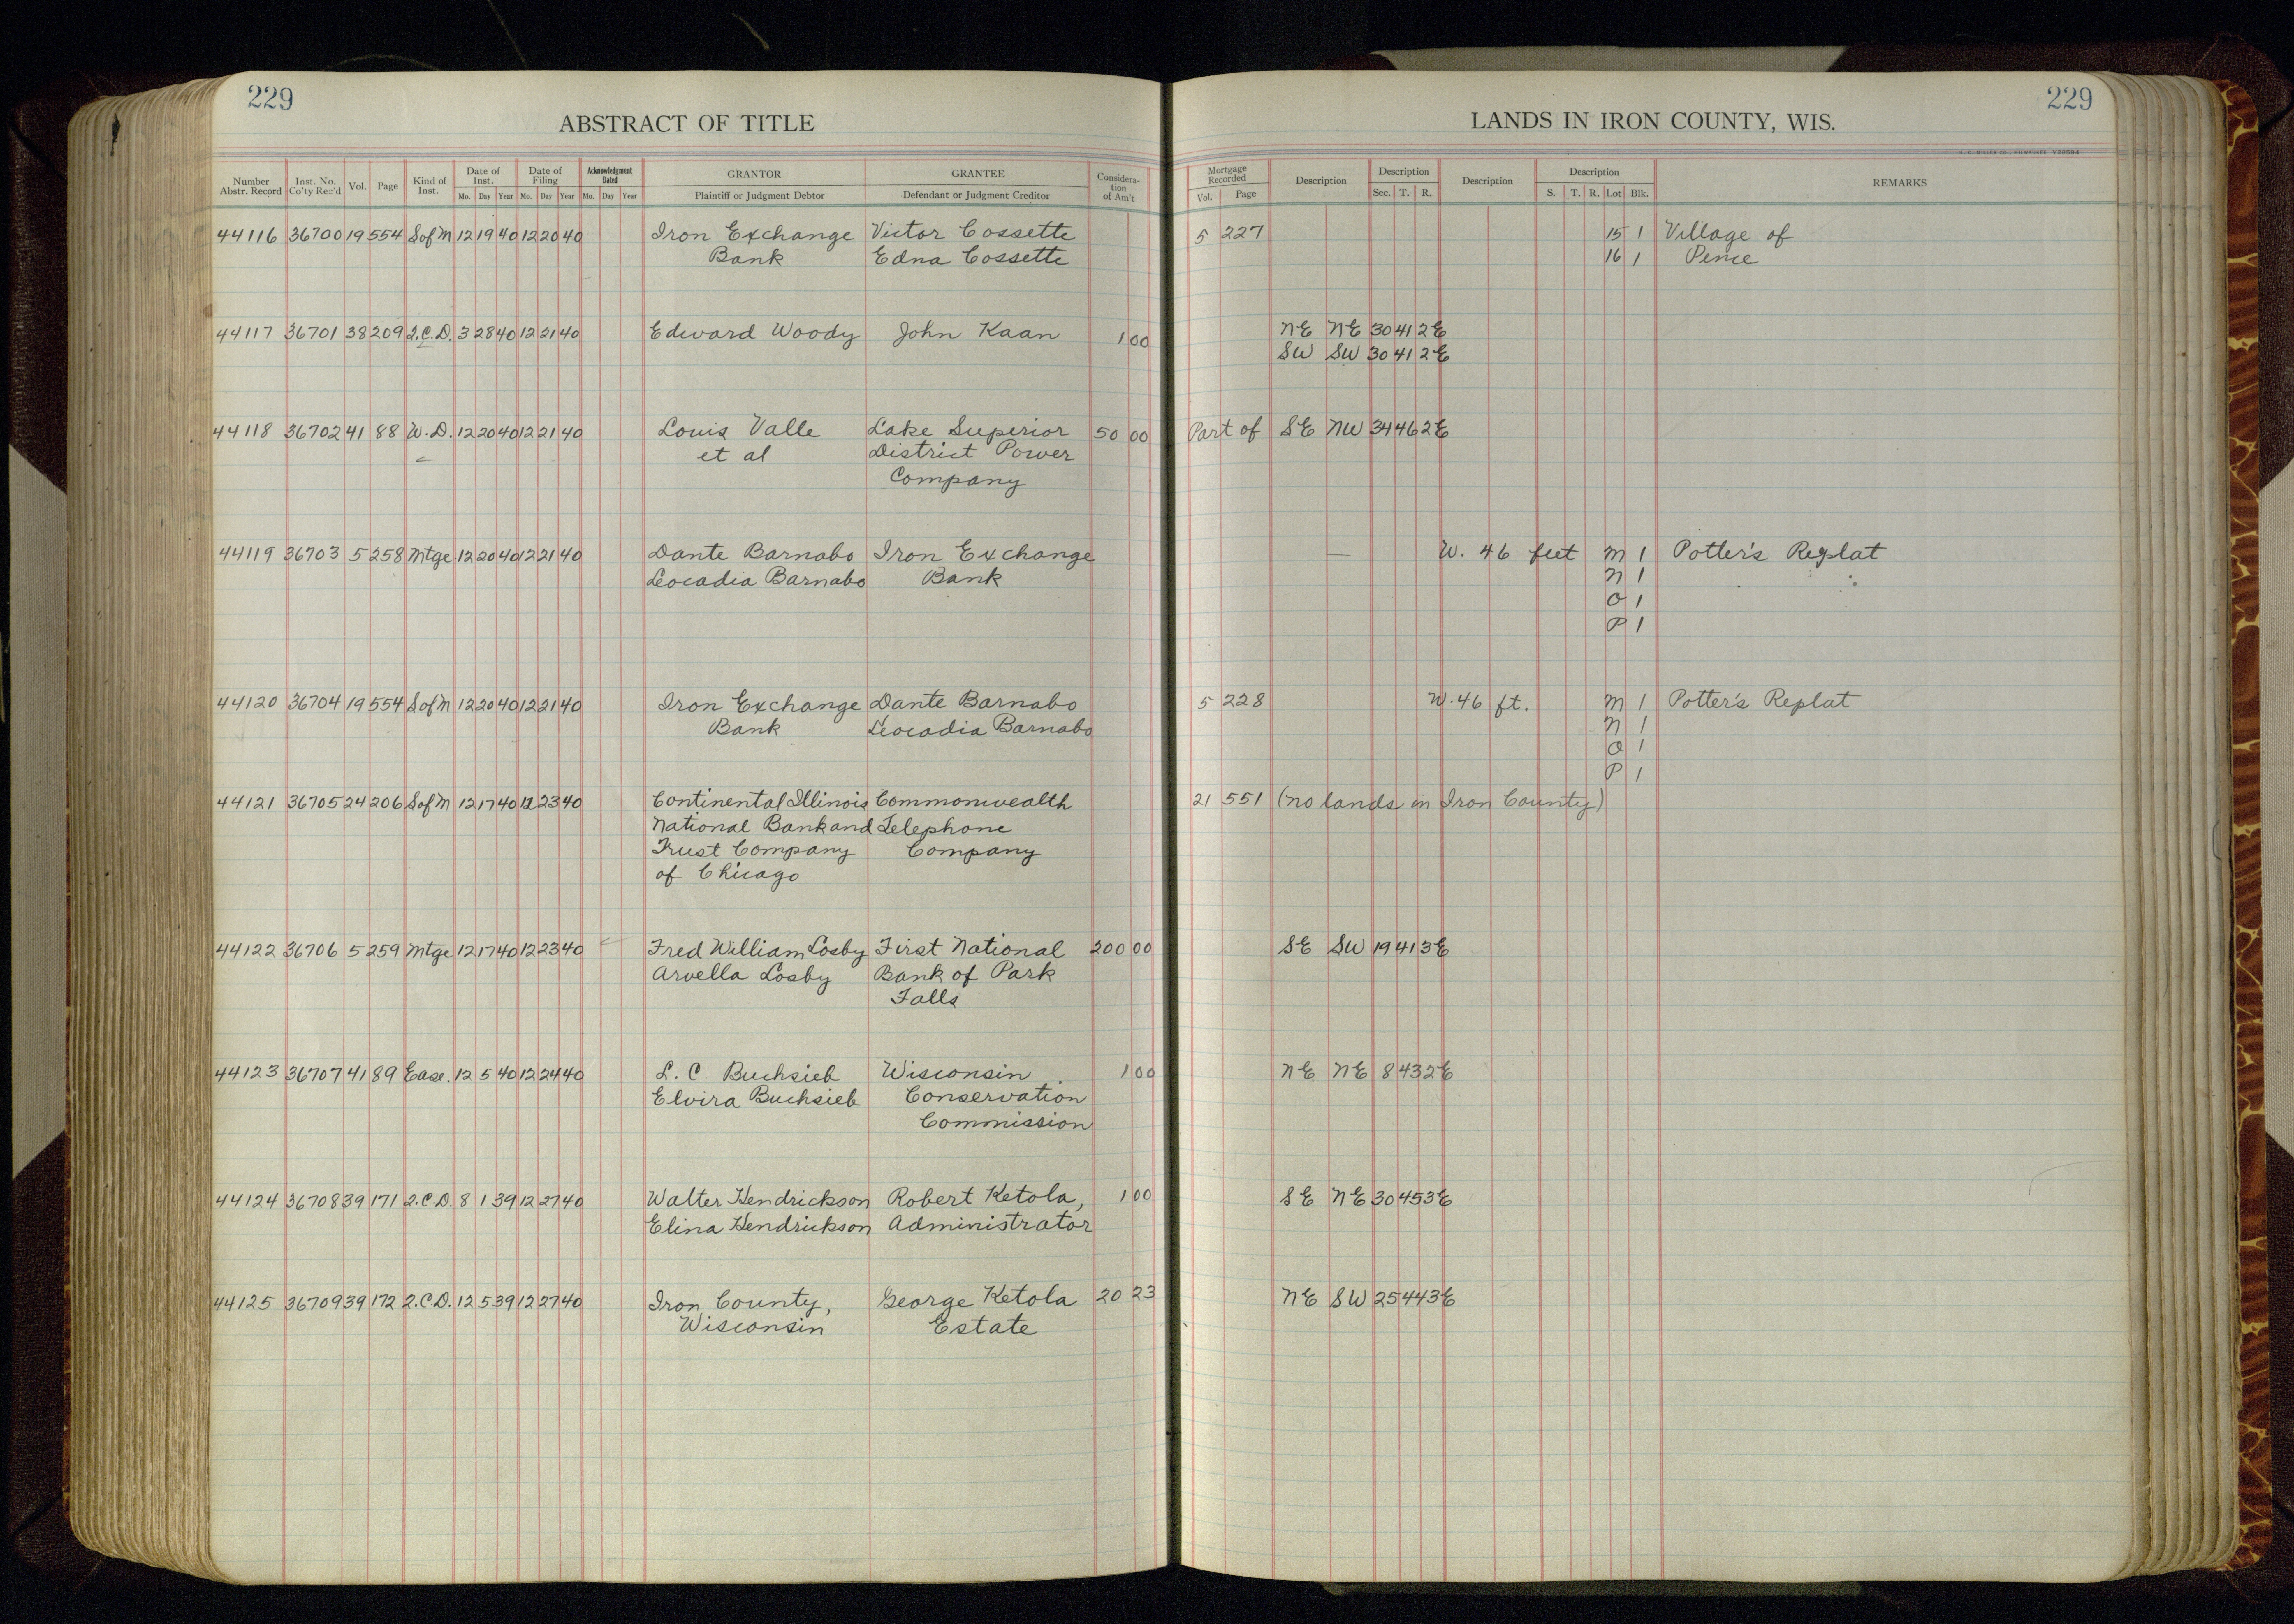 229
229
ABSTRACT OF TITLE
LANDS IN IRON COUNTY, WIS.
H. C. MILLER CO., MILWAUKEE
Number Abstr. Record Inst. No. Co'ty Rec'd Vol. Page Kind of Inst. Date of Inst. Mo. Day Year Date of Filing Mo. Day Year Acknowledgment Dated Mo. Day Year GRANTOR Plaintiff or Judgment Debtor GRANTEE Defendant or Judgment Creditor Consideration of Am't Mortgage Recorded Vol. Page Description Description Sec. T. R. Description Description S. T. R. Lot Blk. REMARKS
44116 36700 19 554 S of M 12 19 40 12 20 40 Iron Exchange Victor Cossette 5 227 15 1 Village of
Bank Edna Cossette 16 1 Pence
44117 36701 38 209 Q.C.D. 3 28 40 12 21 40 Edward Woody John Kaan 1 00 NE NE 30 41 2E
SW SW 30 41 2E
44118 36702 41 88 W.D. 12 20 40 12 21 40 Louis Valle Lake Superior 50 00 Part of SE NW 34 46 2E
et al District Power
Company
44119 36703 5 258 Mtge 12 20 40 12 21 40 Dante Barnabo Iron Exchange — W. 46 feet M 1 Potter's Replat
Leocadia Barnabo Bank N 1
O 1
P 1
44120 36704 19 554 S of M 12 20 40 12 21 40 Iron Exchange Dante Barnabo 5 228 W. 46 ft. M 1 Potter's Replat
Bank Leocadia Barnabo N 1
O 1
P 1
44121 36705 24 206 S of M 12 17 40 12 23 40 Continental Illinois Commonwealth 21 551 (no lands in Iron County)
National Bank and Telephone
Trust Company Company
of Chicago
44122 36706 5 259 Mtge 12 17 40 12 23 40 Fred William Losby First National 200 00 SE SW 19 41 3E
Arvella Losby Bank of Park
Falls
44123 36707 41 89 Ease. 12 5 40 12 24 40 L. C. Buchsieb Wisconsin 1 00 NE NE 8 43 2E
Elvira Buchsieb Conservation
Commission
44124 36708 39 171 Q.C.D. 8 1 39 12 27 40 Walter Hendrickson Robert Ketola, 1 00 SE NE 30 45 3E
Elina Hendrickson Administrator
44125 36709 39 172 Q.C.D. 12 5 39 12 27 40 Iron County, George Ketola 20 23 NE SW 25 44 3E
Wisconsin Estate